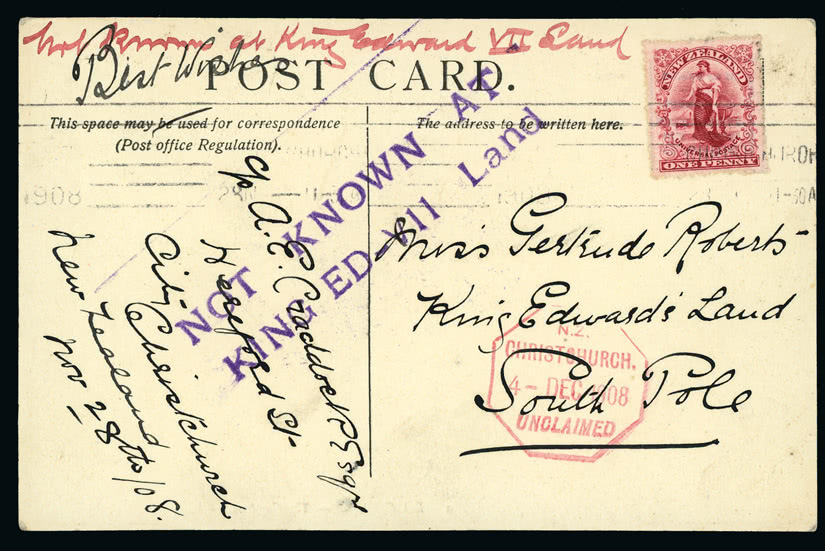 Not Known at King Edward VII Land
Best Wishes
POST CARD.
This space may be used for correspondence
(Post office Regulation).
The address to be written here.
NEW ZEALAND
UNIVERSAL POSTAGE
ONE PENNY
NOT KNOWN AT -
KING ED-VII Land
c/o A. E. Craddock Esqr
Hereford St
City Christchurch
New Zealand
Nov 28th/08.
Miss Gertrude Roberts
King Edward's Land
South Pole
N.Z.
CHRISTCHURCH.
4 - DEC 1908
UNCLAIMED
1908